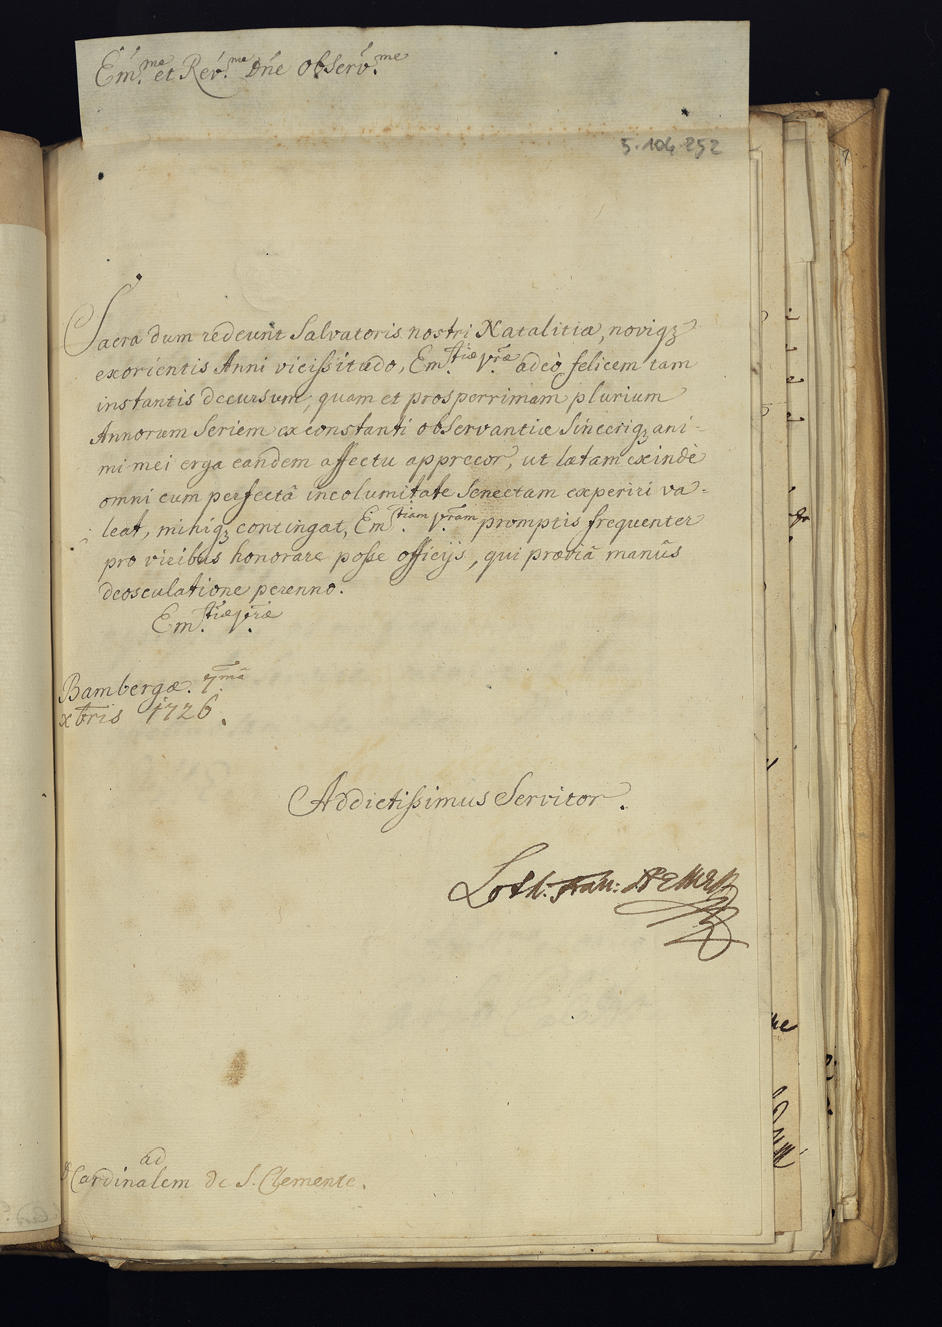 Em̃.me et Reṽ.me Dñe Obserṽ.me
5.104.252
Sacra dum redeunt Salvatoris nostri Natalitia, noviq3
exorientis Anni vicissitudo, Em.tiæ Vræ adeò felicem tam
instantis decursum, quam et prosperrimam plurium
Annorum Seriem ex constanti observantiæ Sinceriq3 ani-
mi mei erga eandem affectu apprecor, ut lætam exindè
omni cum perfectâ incolumitate Senectam experiri va-
leat, mihiq3 contingat, Em.tiam Vram promptis frequenter
pro viribus honorare posse officijs, qui præviâ manûs
deosculatione perenno.
Em.tiæ Vræ
Bambergæ. 7mâ
xbris 1726.
Addictissimus Servitor.
Loth. Fran:
ad
Cardinalem de S. Clemente.